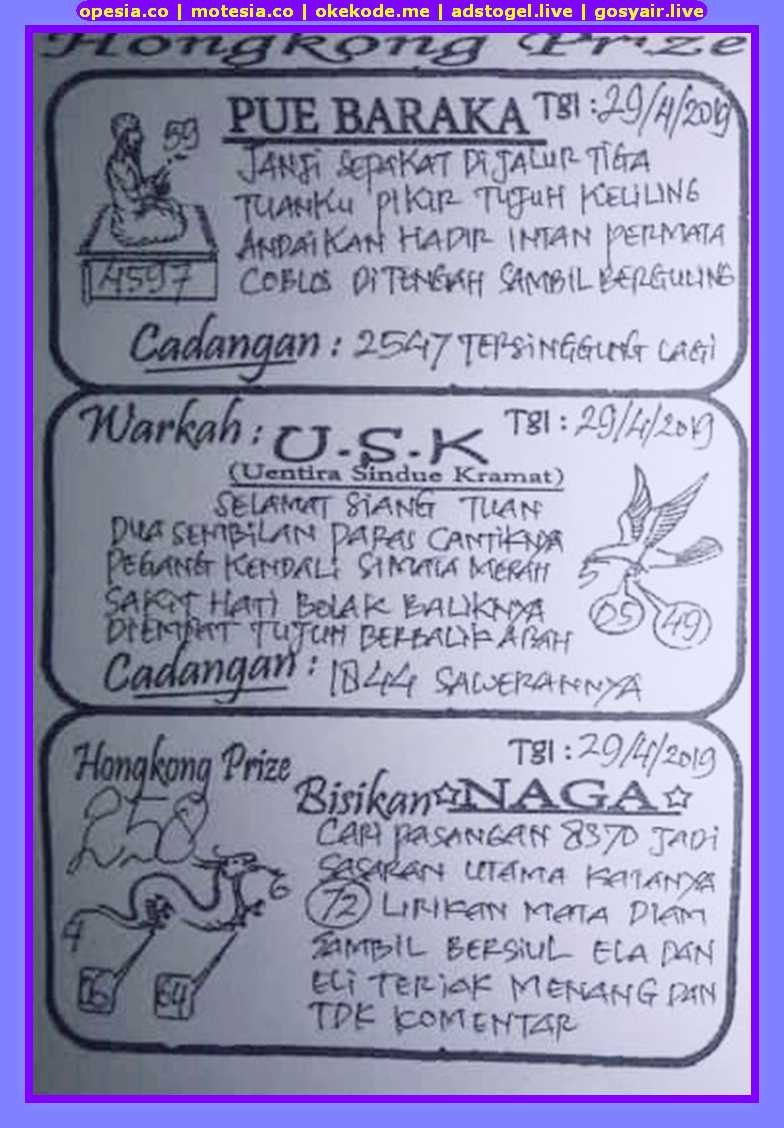 opesia.co | motesia.co | okekode.me | adstogel.live | gosyair.live
Hongkong Prize
PUE BARAKA Tgl : 29/4/2019
59
JANJI SEPAKAT DI JALUR TIGA
TUANKU PIKIR TUJUH KELILING
ANDAIKAN HADIR INTAN PERMATA
4597
COBLOS DI TENGAH SAMBIL BERGULING
Cadangan : 2547 TERSINGGUNG LAGI
Warkah : U.S.K Tgl : 29/4/2019
(Uentira Sindue Kramat)
SELAMAT SIANG TUAN
DUA SEMBILAN PARAS CANTIKNYA
PEGANG KENDALI SI MATA MERAH
SAKIT HATI BOLAK BALIKNYA
DIEMPAT TUJUH BERBALIK ARAH
5
05 49
Cadangan : 1844 SAWERANNYA
Hongkong Prize Tgl : 29/4/2019
Bisikan ☆NAGA☆
258
CARI PASANGAN 8370 JADI
SASARAN UTAMA KATANYA
6
72 LIRIKAN MATA DIAM
4
SAMBIL BERSIUL ELA DAN
64
ELI TERIAK MENANG DAN
TDK KOMENTAR